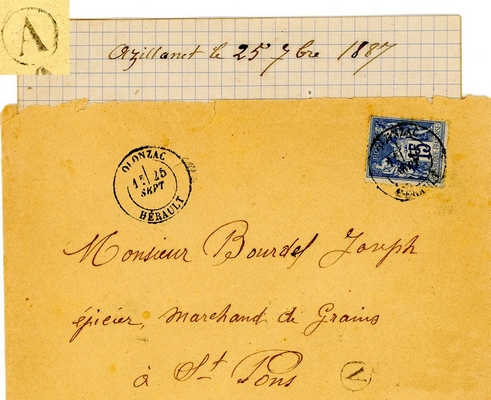 A
Azillanet le 25 7bre 1887
OLONZAC
25
SEPT
HÉRAULT
OLONZAC
15
Monsieur Bourdel Joseph
épicier, Marchand de Grains
à St Pons
A